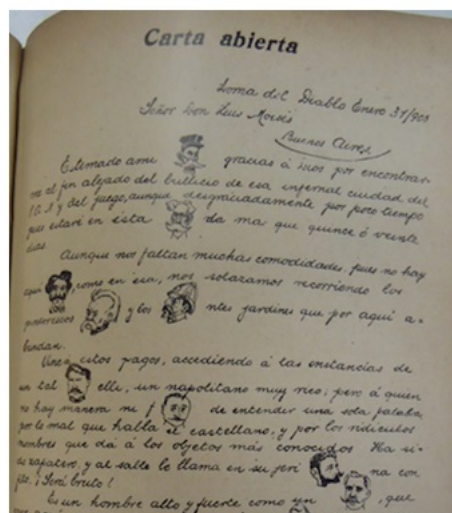 Carta abierta
Loma del Diablo Enero 31/903
Señor Don Luis Moisés
Buenos Aires
Estimado ami gracias á Dios por encontrar-
me al fin alejado del bullicio de esa infernal ciudad del
y del juego, aunque desgraciadamente por poco tiempo
pues estaré en ésta da mas que quince ó veinte
dias.
Aunque nos faltan muchas comodidades, pues no hay
aquí como en esa, nos solazamos recorriendo los
pintorescos y los ntes jardines que por aquí a-
bundan.
Vine á estos pagos, accediendo á las instancias de
un tal elli, un napolitano muy rico; pero á quien
no hay manera ni f de entender una sola palabra,
por lo mal que habla el castellano, y por los ridículos
nombres que dá á los objetos más conocidos Ha si-
do zapatero, y al salle le llama en su jeri na con
¡Será bruto!
Es un hombre alto y fuerte como un , que